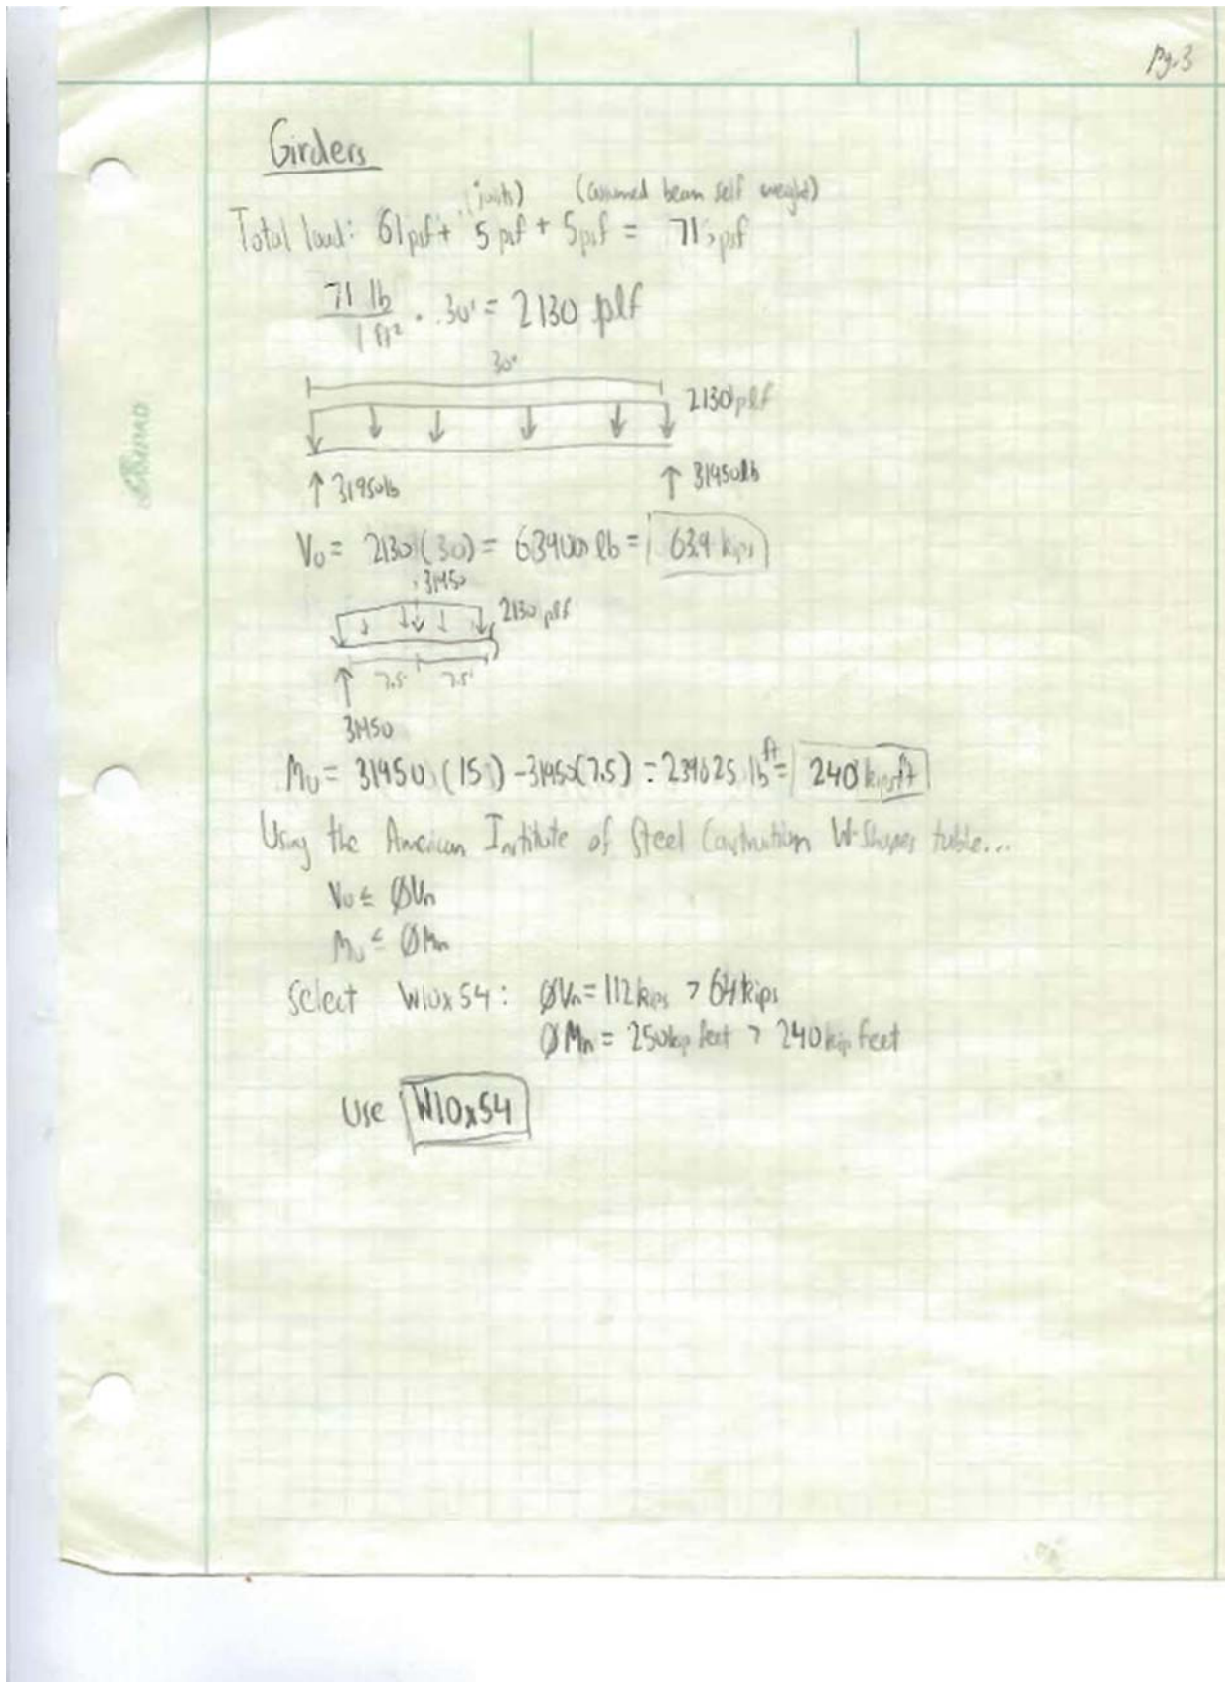 Pg. 3
Girders
(joists) (assumed beam self weight)
Total load: 61psf + 5 psf + 5psf = 71 psf
71 lb
1 ft² · 30' = 2130 plf
30'
2130 plf
↑ 31950lb ↑ 31950lb
Vu = 2130 (30) = 63900 lb = 63.9 kips
31950
2130 plf
7.5' 7.5'
31950
Mu = 31950 (15) - 31950(7.5) = 239625 lb ft = 240 kips ft
Using the American Institute of Steel Construction W-Shapes table...
Vu ≤ ØVn
Mu ≤ ØMn
Select W10x54: ØVn = 112 kips > 64 kips
ØMn = 250 kip feet > 240 kip feet
Use W10x54